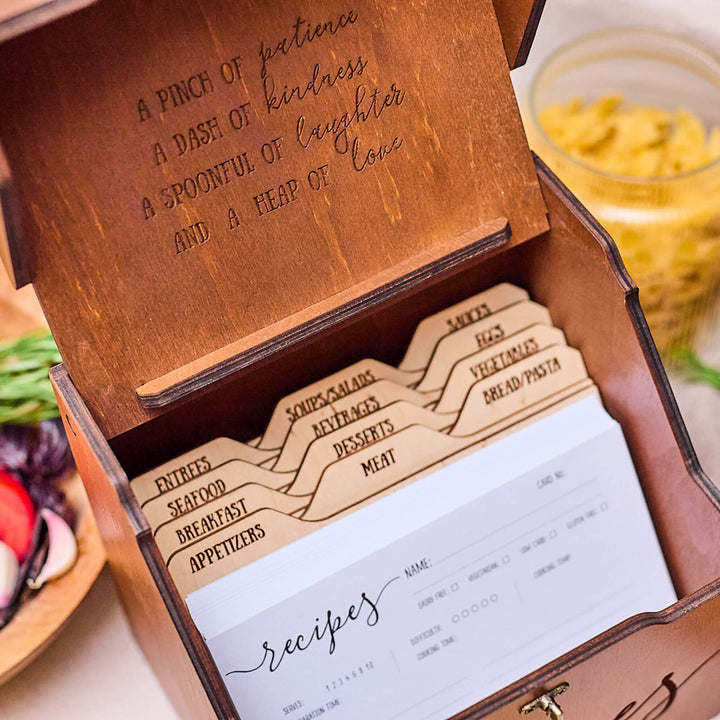 A PINCH OF patience
A DASH OF kindness
A SPOONFUL OF laughter
AND A HEAP OF love
SAUCES
EGGS
VEGETABLES
BREAD/PASTA
SOUPS/SALADS
BEVERAGES
DESSERTS
MEAT
ENTREES
SEAFOOD
BREAKFAST
APPETIZERS
CARD NO:
NAME:
DAIRY FREE VEGETARIAN LOW CARB GLUTEN FREE
recipes
DIFFICULTY: COOKING TEMP:
COOKING TIME:
SERVES: 1 2 3 4 6 8 10
PREPARATION TIME: